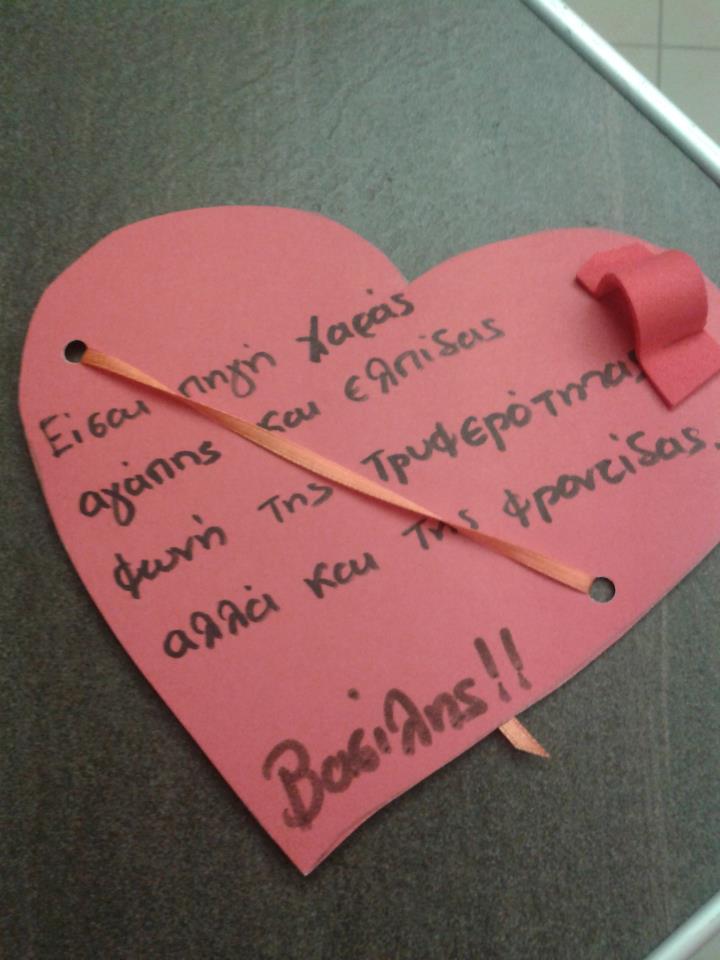 Είσαι πηγή χαράς
αγάπης και ελπίδας
φωνή της τρυφερότητας
αλλά και της φροντίδας.
Βασίλης!!